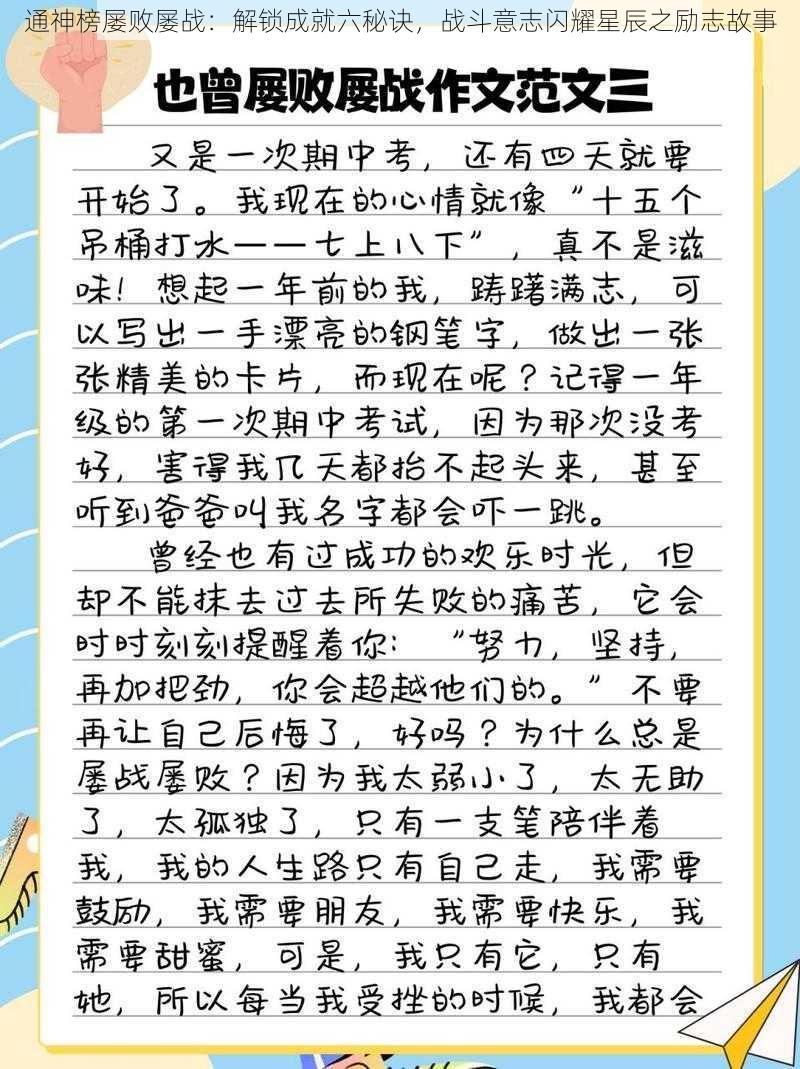 通神榜屡败屡战：解锁成就六秘诀，战斗意志闪耀星辰之励志故事
也曾屡败屡战作文范文三
又是一次期中考，还有四天就要
开始了。我现在的心情就像“十五个
吊桶打水——七上八下”，真不是滋
味！想起一年前的我，踌躇满志，可
以写出一手漂亮的钢笔字，做出一张
张精美的卡片，而现在呢？记得一年
级的第一次期中考试，因为那次没考
好，害得我几天都抬不起头来，甚至
听到爸爸叫我名字都会吓一跳。
曾经也有过成功的欢乐时光，但
却不能抹去过去所失败的痛苦，它会
时时刻刻提醒着你：“努力，坚持，
再加把劲，你会超越他们的。”不要
再让自己后悔了，好吗？为什么总是
屡战屡败？因为我太弱小了，太无助
了，太孤独了，只有一支笔陪伴着
我，我的人生路只有自己走，我需要
鼓励，我需要朋友，我需要快乐，我
需要甜蜜，可是，我只有它，只有
她，所以每当我受挫的时候，我都会